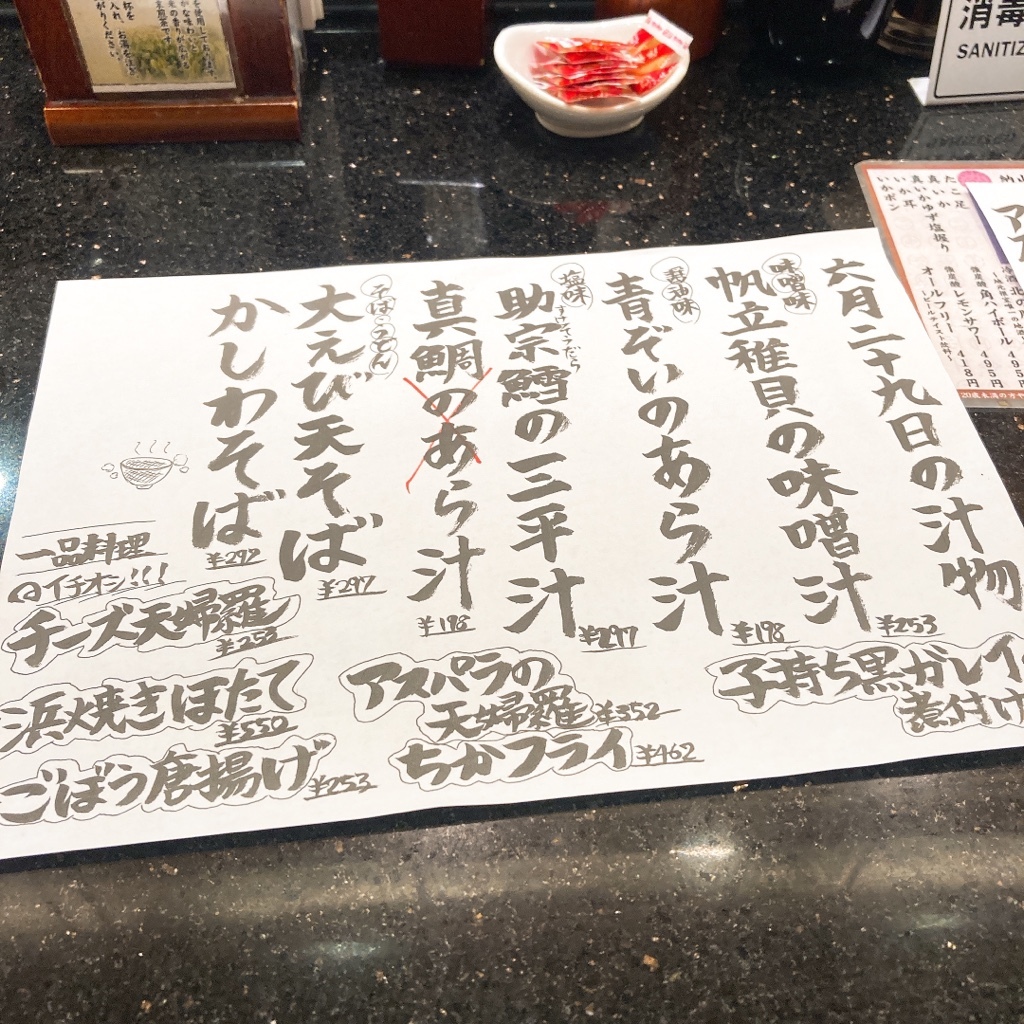 六月二十九日の汁物
味噌味
帆立稚貝の味噌汁
¥253
醤油味
青ぞいのあら汁
¥198
塩味
助宗鱈の三平汁
すけそうだら
¥297
真鯛のあら汁
¥198
そば・うどん
大えび天そば
¥297
かしわそば
¥297
一品料理
イチオシ!!!
チーズ天婦羅
¥253
浜焼きほたて
¥550
ごぼう唐揚げ
¥253
アスパラの
天婦羅 ¥352
ちかフライ ¥462
子持ち黒ガレイの
煮付け
消毒
SANITIZ
たこ足
真いか
真いかゆず塩握り
いか耳
いかポン
角ハイボール 495
レモンサワー 495円
オールフリー 418円